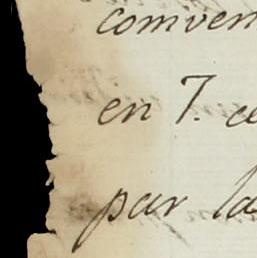 comven
en 7. ce
par la